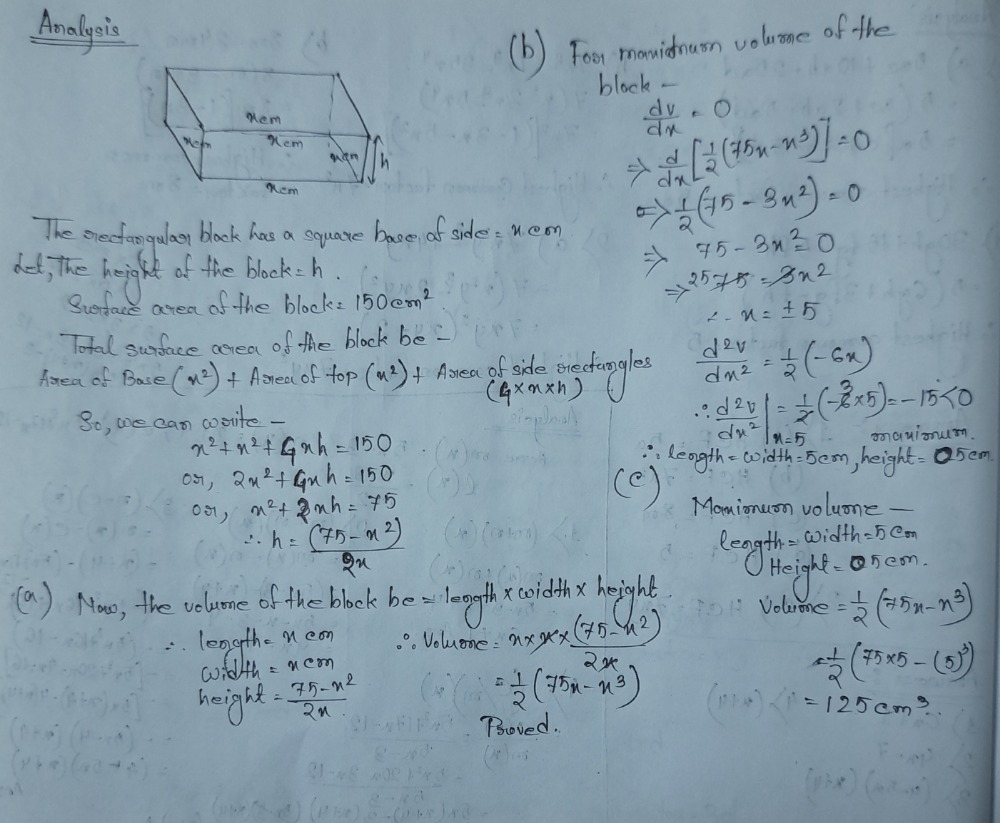 Analysis
x cm
x cm
x cm
x cm
h
x cm
The rectangular block has a square base, of side = x cm
Let, The height of the block = h.
Surface area of the block = 150 cm²
Total surface area of the block be –
Area of Base (x²) + Area of top (x²) + Area of side rectangles
(4×x×h)
So, we can write –
x² + x² + 4xh = 150
or, 2x² + 4xh = 150
or, x² + 2xh = 75
∴ h = (75 - x²) / 2x
(a) Now, the volume of the block be = length × width × height.
∴ length = x cm
width = x cm
height = 75 - x² / 2x
∴ Volume = x × x × (75 - x²) / 2x
= 1/2 (75x - x³)
Proved.
(b) For maximum volume of the
block –
dv/dx = 0
⇒ d/dx [1/2 (75x - x³)] = 0
⇒ 1/2 (75 - 3x²) = 0
⇒ 75 - 3x² = 0
⇒ 25 75 = 3x²
∴ x = ± 5
d2v/dx² = 1/2 (-6x)
∴ d2v/dx² | x=5 = 1/2 (-6 3 × 5) = -15 < 0
maximum.
∴ length = width = 5cm, height = 05cm.
(c)
Maximum volume –
length = width = 5 cm
Height = 05cm.
Volume = 1/2 (75x - x³)
= 1/2 (75×5 - (5)³)
= 125 cm³.